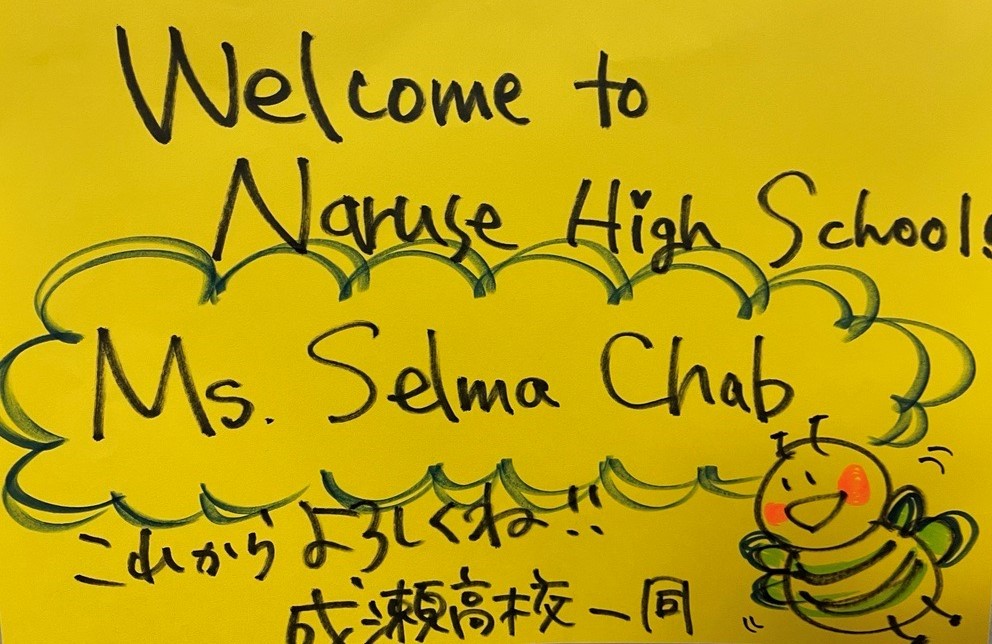 Welcome to
Naruse High School!
Ms. Selma Chab
これからよろしくね!!
成瀬高校一同